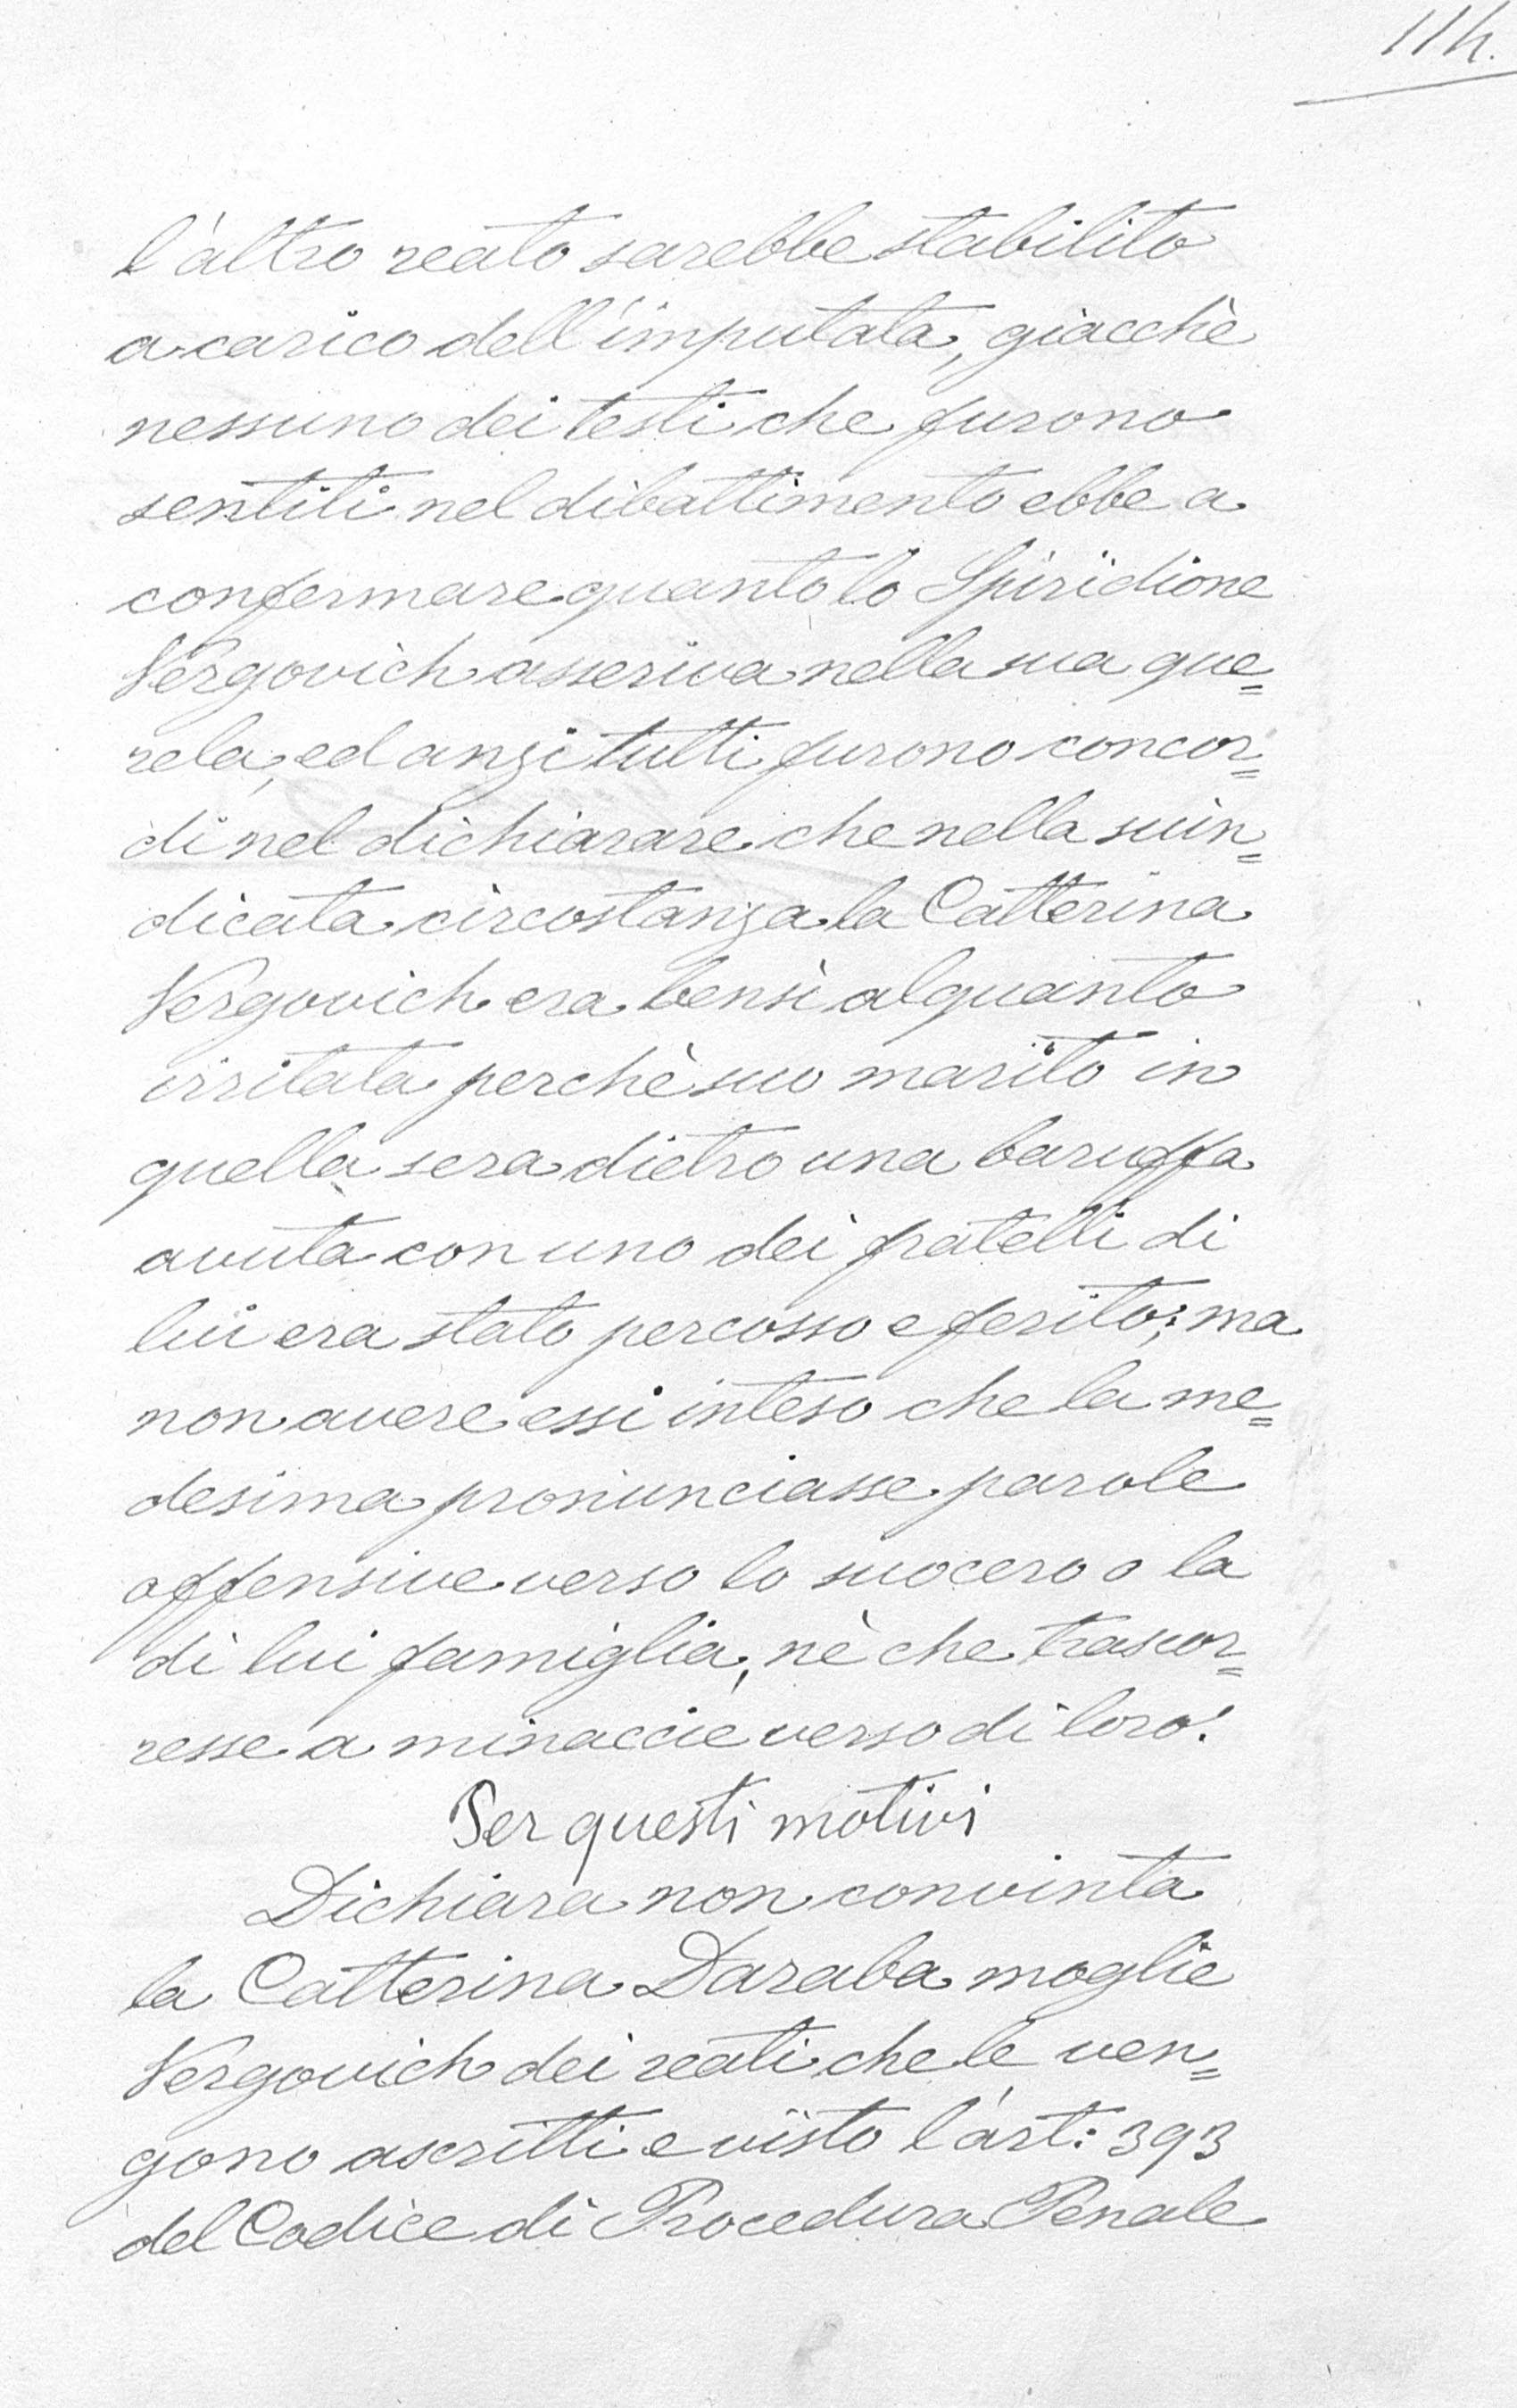 114.
l'altro reato sarebbe stabilito
a carico dell'imputata, giacchè
nessuno dei testi che furono
sentiti nel dibattimento ebbe a
confermare quanto lo Spiridione
Vergovich asseriva nella sua que=
rela, ed anzi tutti furono concor=
di nel dichiarare che nella suin=
dicata circostanza la Catterina
Vergovich era bensì alquanto
irritata perchè suo marito in
quella sera dietro una baruffa
avuta con uno dei fratelli di
lui era stato percosso e ferito; ma
non avere essi inteso che la me=
desima pronunciasse parole
offensive verso lo suocero o la
di lui famiglia, nè che trascor=
resse a minaccie verso di loro.
Per questi motivi
Dichiara non convinta
la Catterina Daraba moglie
Vergovich dei reati che le ven=
gono ascritti e visto l'art: 393
del Codice di Procedura Penale